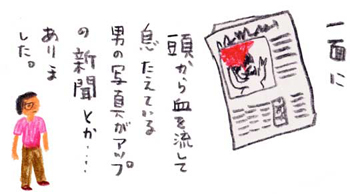 一面に
頭から血を流して
息たえている
男の写真がアップ
の新聞とか・・・
ありま
した。